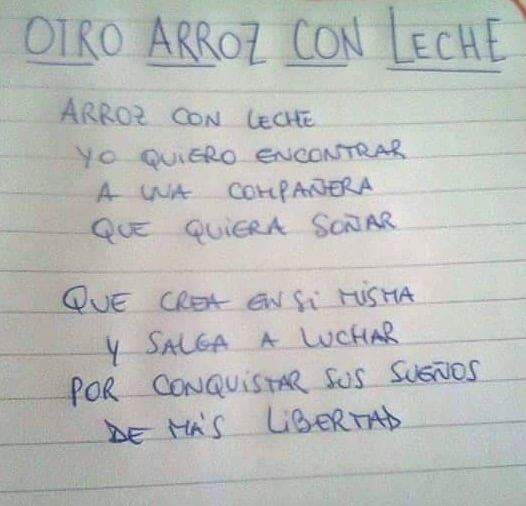 OTRO ARROZ CON LECHE
ARROZ CON LECHE
YO QUIERO ENCONTRAR
A UNA COMPAÑERA
QUE QUIERA SOÑAR
QUE CREA EN SI MISMA
Y SALGA A LUCHAR
POR CONQUISTAR SUS SUEÑOS
DE MÁS LIBERTAD